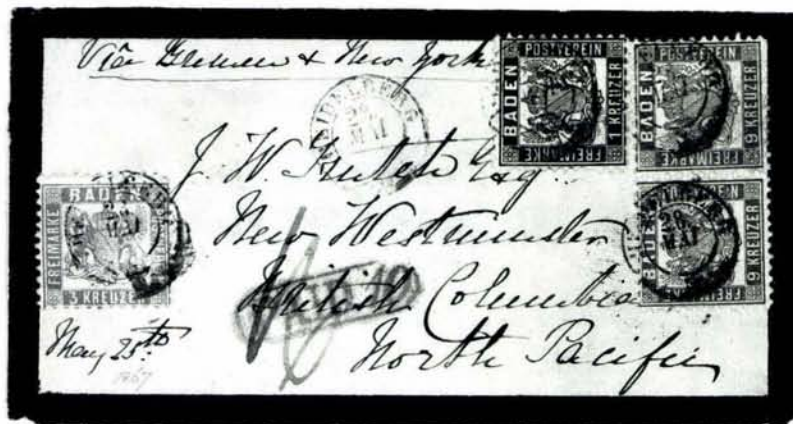 Via Bremen & New York
POSTVEREIN
BADEN
1 KREUZER
FREIMARKE
POSTVEREIN
BADEN
9 KREUZER
FREIMARKE
HEIDELBERG
MAI
J. W. Trutch Esq.
New Westminster
British Columbia
North Pacific
BADEN
FREIMARKE
3 KREUZER
MAI
BADEN
9 KREUZER
FREIMARKE
MAI
May 25th
1867